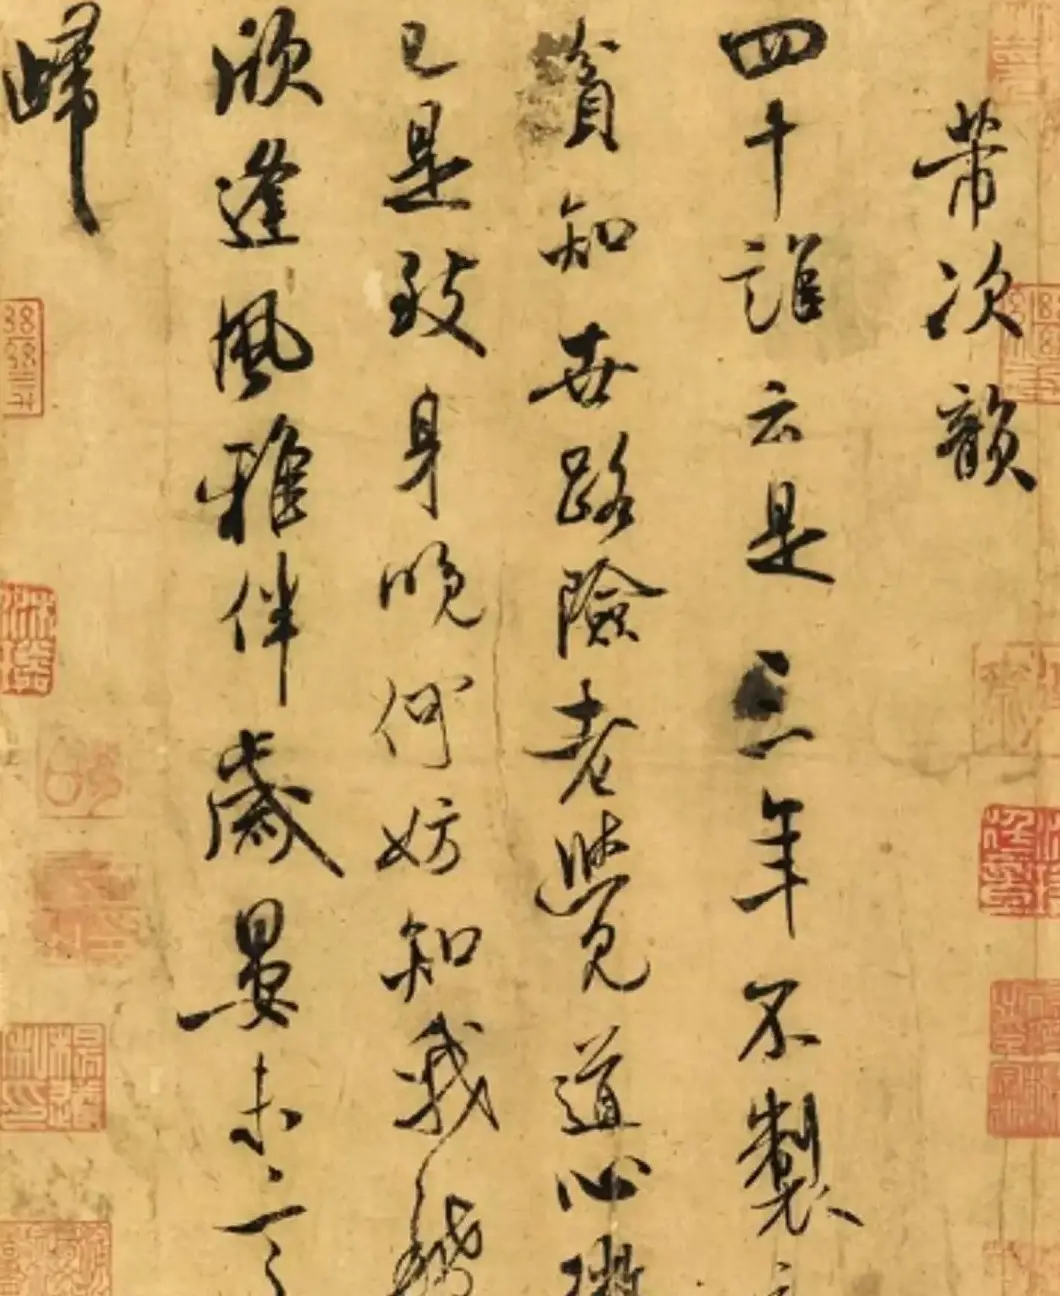 帶次韻
四十誰云是三年不製
貧知世路險老覺道心微
已是致身晚何妨知我稀
欣逢風雅伴歲晏未言
歸